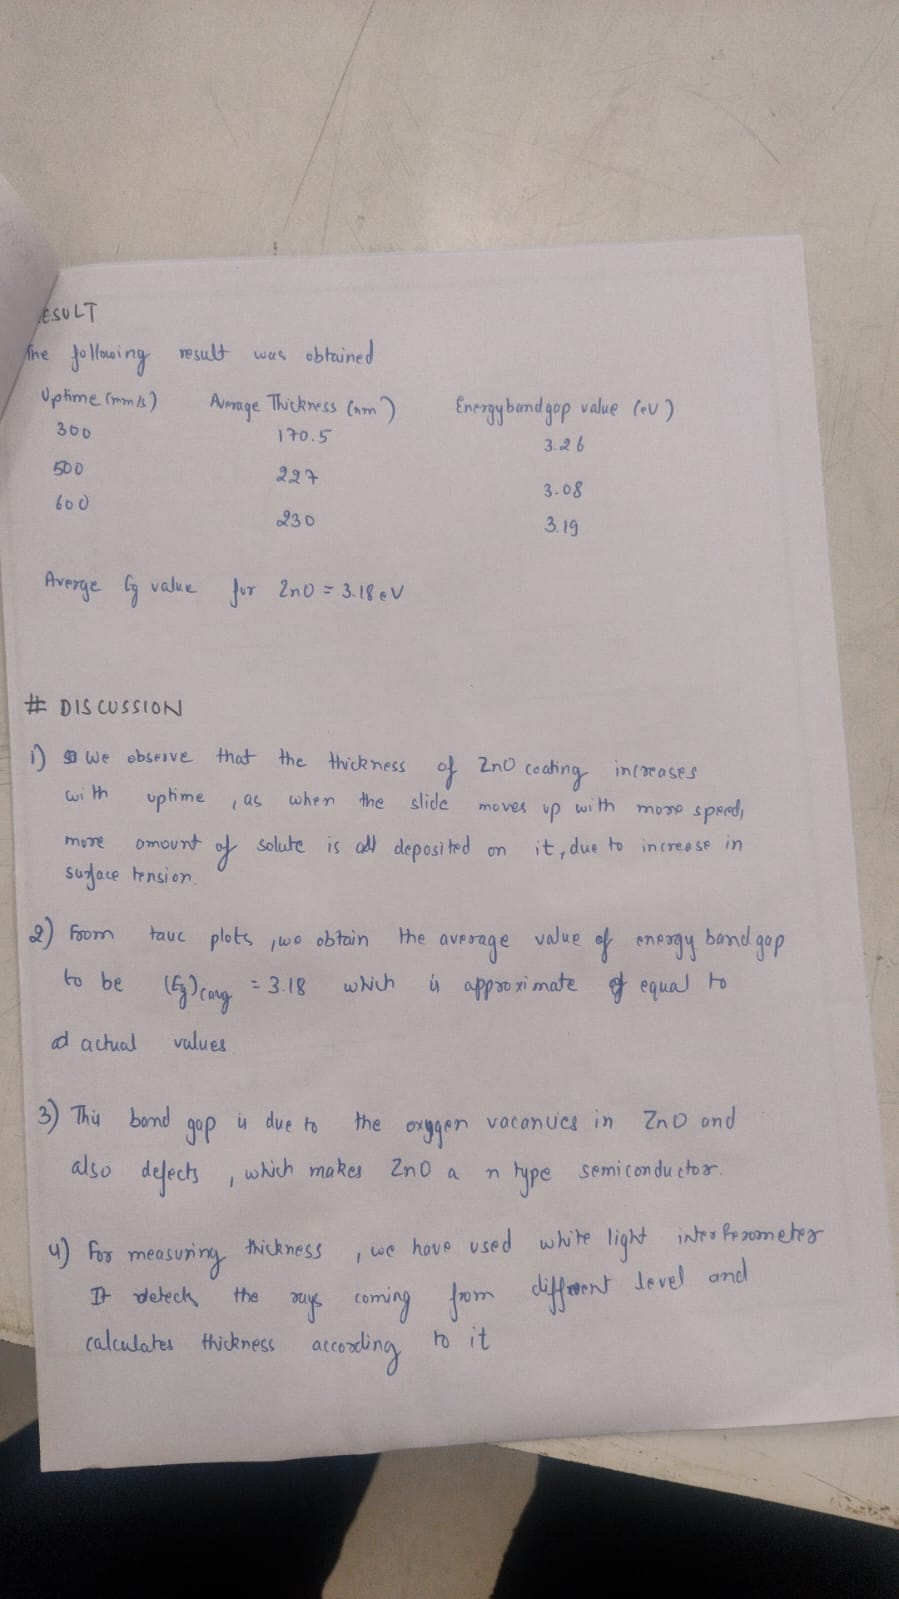 ESULT
The following result was obtained
Uptime (mm/s) Average Thickness (nm) Energy band gap value (eV)
300 170.5 3.26
500 227 3.08
600 230 3.19
Averge Eg value for ZnO = 3.18 eV
# DISCUSSION
1) We observe that the thickness of ZnO coating increases
with uptime , as when the slide moves up with more speed,
more amount of solute is deposited on it, due to increase in
surface tension.
2) From tauc plots , we obtain the average value of energy band gap
to be (Eg) = 3.18 which is approximate equal to
actual values
3) This band gap is due to the oxygen vacancies in ZnO and
also defects , which makes ZnO a n type semiconductor.
4) For measuring thickness , we have used white light interferometer
It detects the rays coming from different level and
calculates thickness according to it